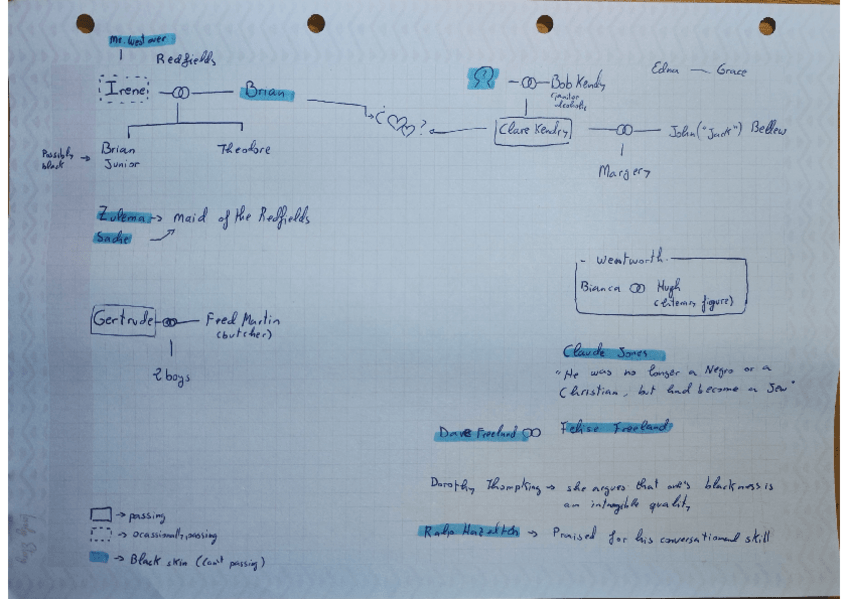 Mr. Westover
Redfields
Irene
Brian
Bob Kendry
janitor
alcoholic
Edna — Grace
¿ ?
Clare Kendry
John ("Jack") Bellew
Possibly
black
Brian
Junior
Theodore
Margery
Zulema → maid of the Redfields
Sadie
Wentworth
Bianca
Hugh
(literary figure)
Gertrude
Fred Martin
(butcher)
2 boys
Claude Jones
"He was no longer a Negro or a
Christian, but had become a Jew"
Dave Freeland
Felise Freeland
Dorothy Thompking → she argues that one's blackness is
an intangible quality
Ralp Hazelton → Praised for his conversational skill
→ passing
→ ocassionally passing
→ Black skin (Can't passing)